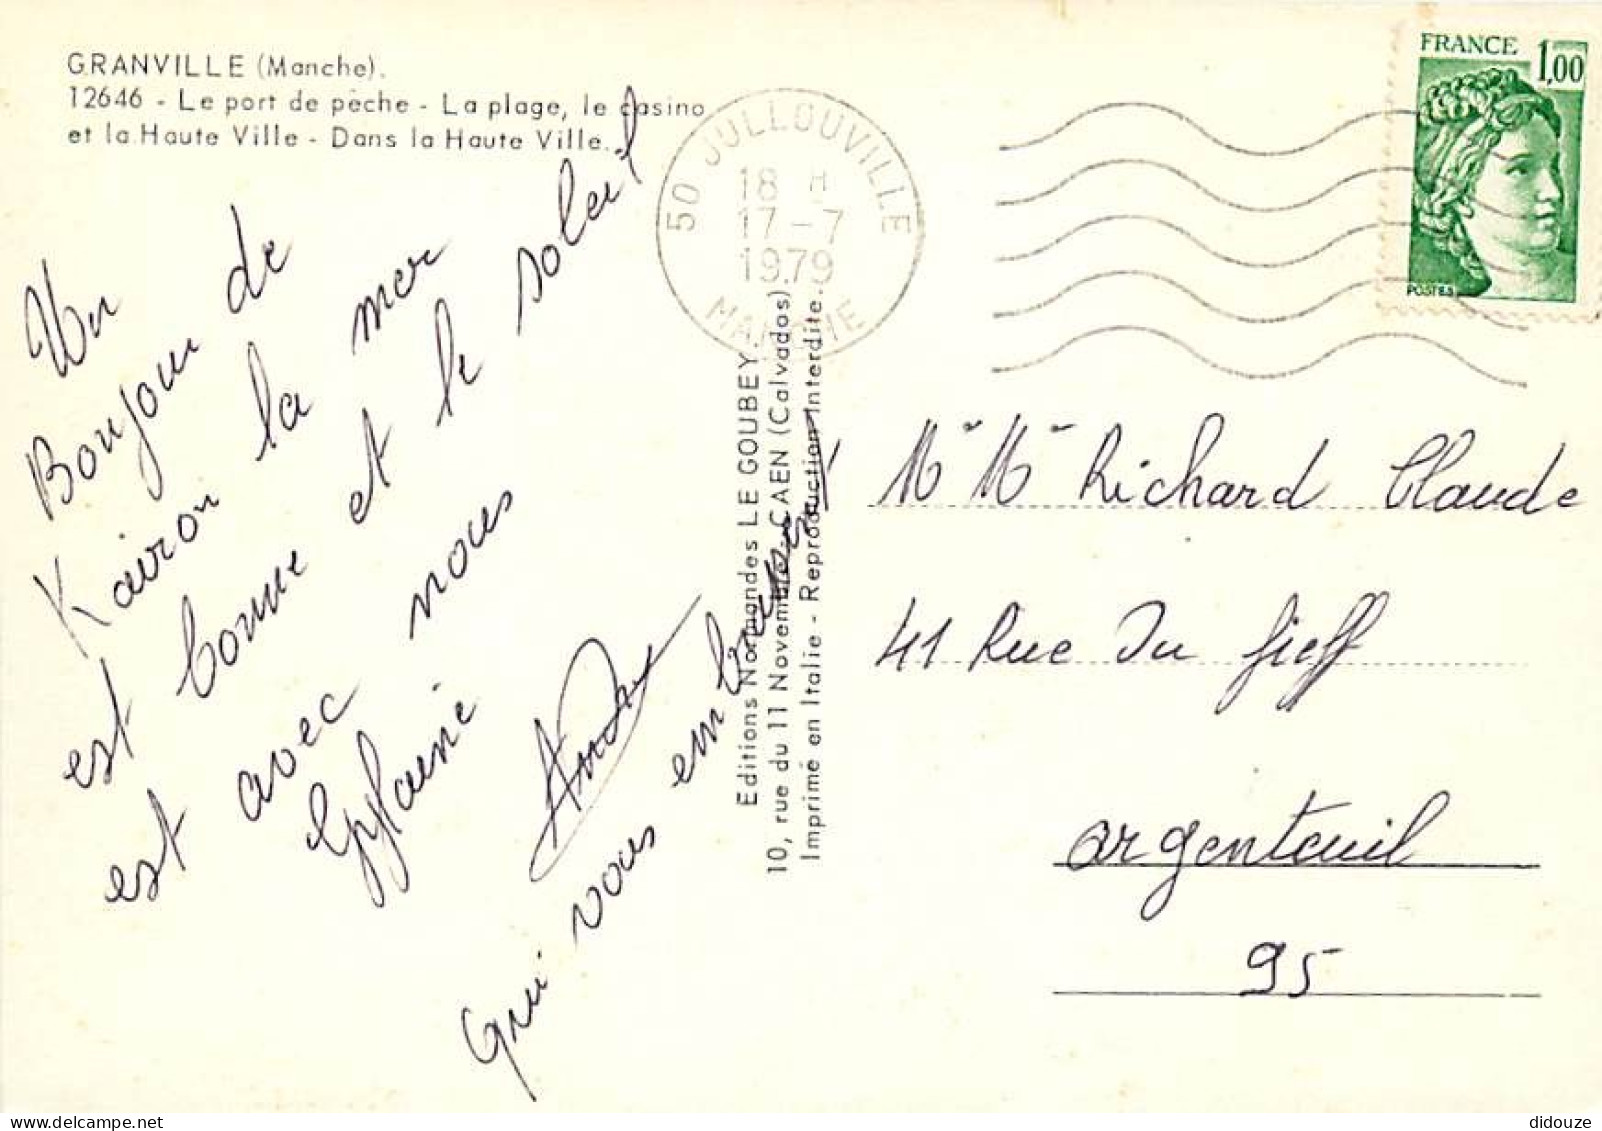 GRANVILLE (Manche).
12646 - Le port de pèche - La plage, le casino
et la Haute Ville - Dans la Haute Ville.
50 JULLOUVILLE
18 H
17-7
1979
MANCHE
FRANCE 1,00
POSTES
Un
Bonjour de
Kairon la mer
est bonne et le soleil
est avec nous
Gylaine
Qui vous embrassent
Editions Normandes LE GOUBEY
10, rue du 11 Novembre - CAEN (Calvados).
Imprimé en Italie - Reproduction Interdite.
Mr Mr Richard Claude
41 Rue Du fieff
argenteuil
95
didouze